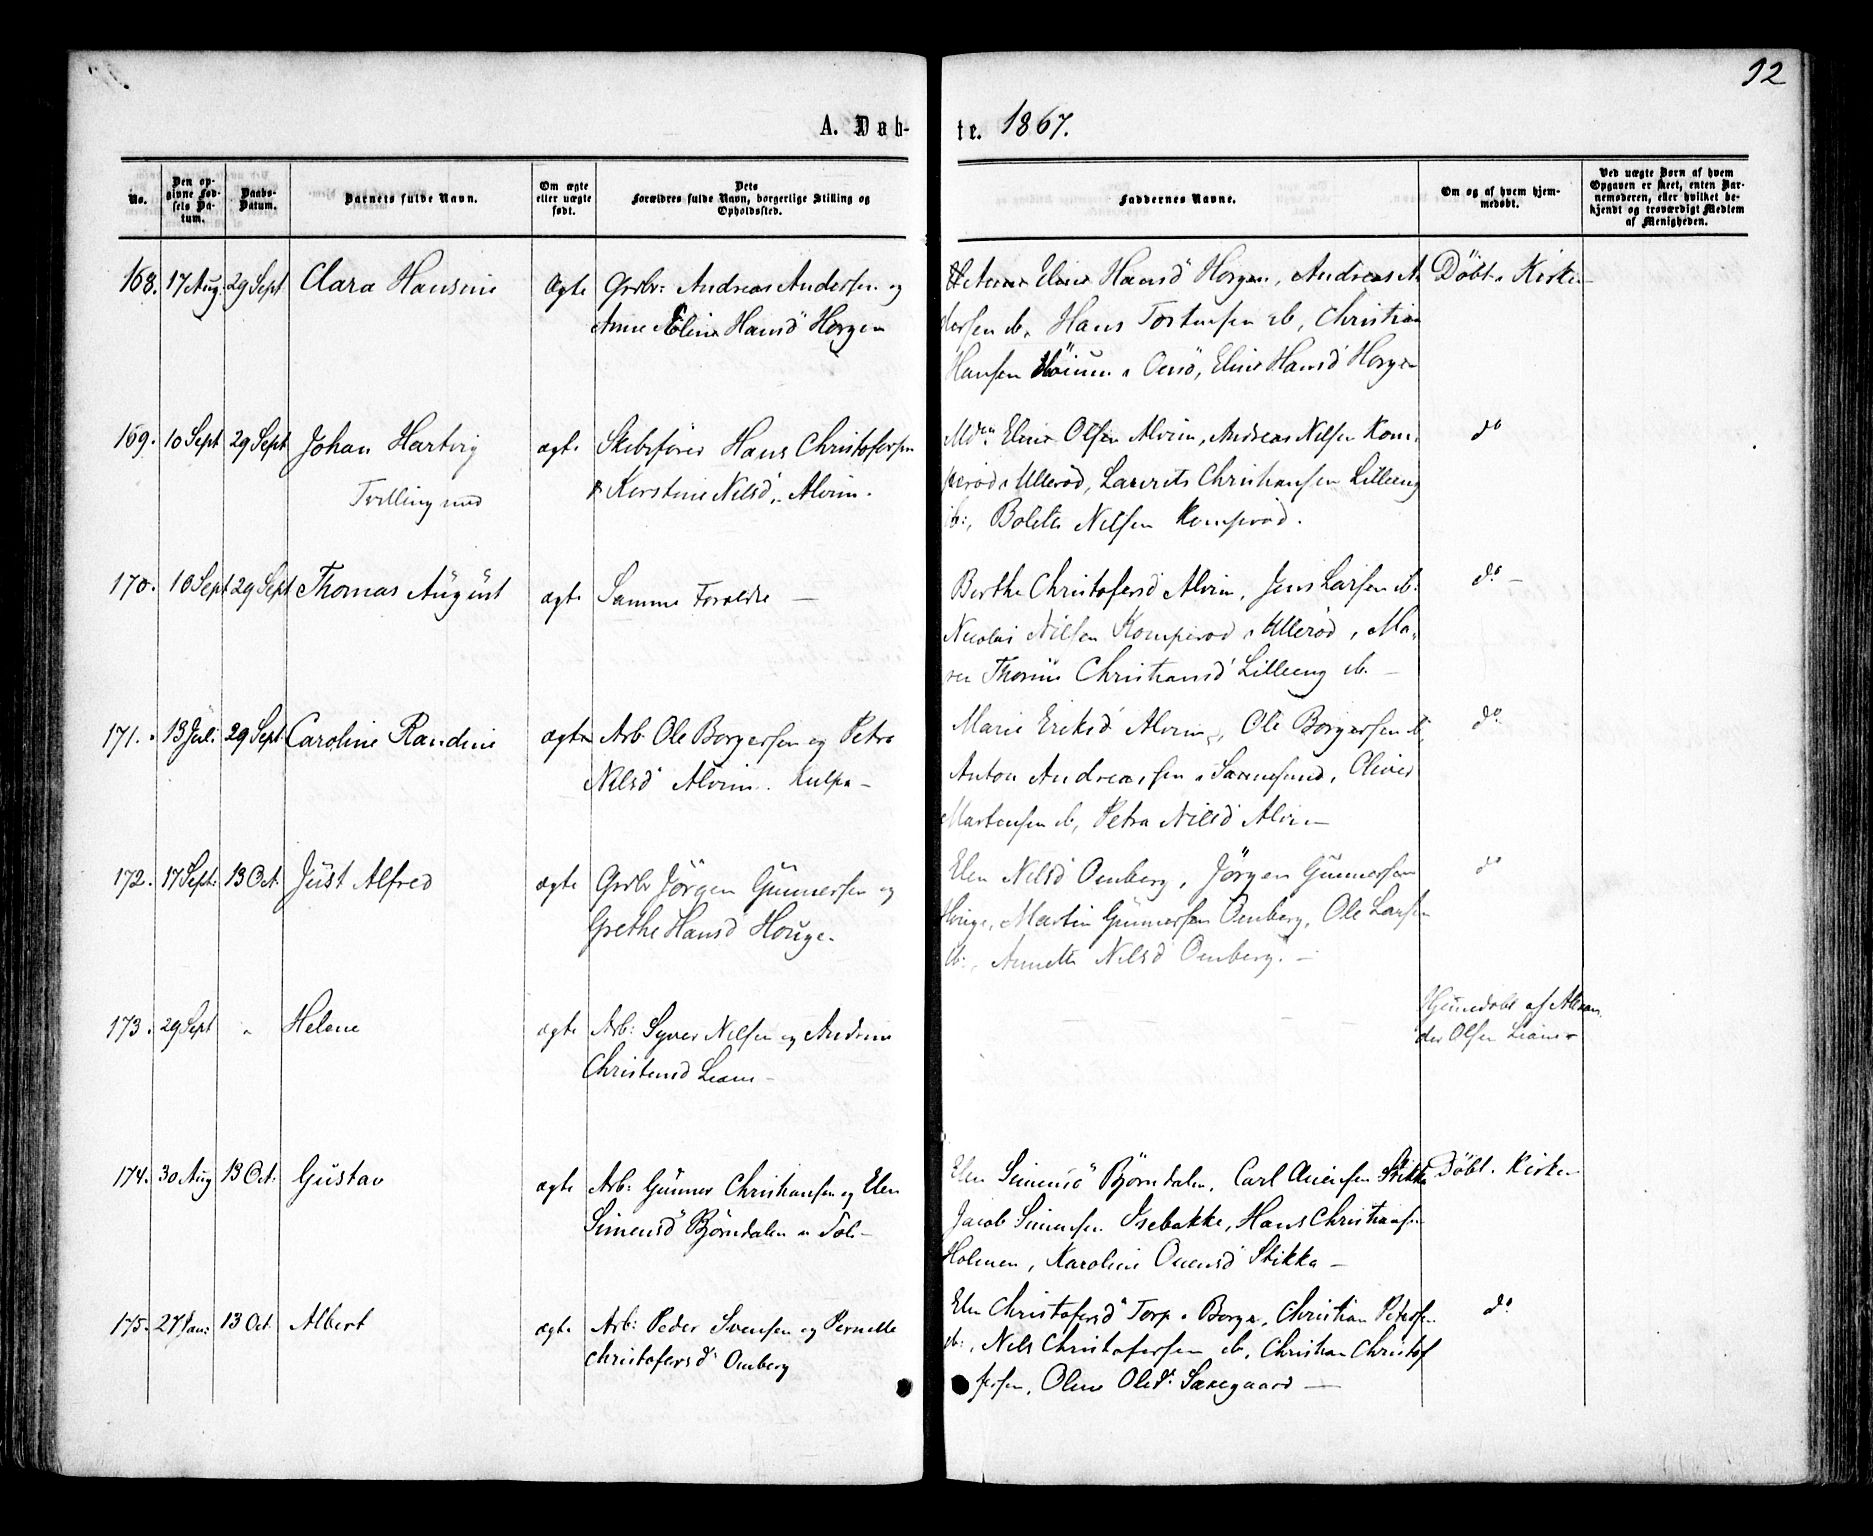 92
A. Døb-
te. 1867.
No.
Den op-
givne Fød-
sels Da-
tum.
Daabs-
Datum.
Barnets fulde Navn.
Om ægte
eller uægte
født.
Dets
Forældres fulde Navn, borgerlige Stilling og
Opholdssted.
Faddernes Navne.
Om og af hvem hjem-
medøbt.
Ved uægte Børn af hvem
Opgaven er skeet, enten Bar-
nemoderen, eller hvilket be-
kjendt og troværdigt Medlem
af Menigheden.
168. 17 Aug: 29 Sept Clara Hansine ægte Grdbr: Andreas Andersen og
Anne Eline Hansd Horgen
Eline Hansd Horgen, Andreas An
dersen ib, Hans Torstensen ib, Christian
Hansen Onsö, Eline Hansd Horgen
Döbt i Kirken
169. 10 Sept 29 Sept Johan Hartvig ægte Skibsförer Hans Christofersen
Tvilling med
& Kerstine Nilsd, Alvim.
Eline Olsen Alvim, Andreas Nilsen Kom-
peröd i Ulleröd, Laurits Christiansen Lilleeng
ib:, Bolette Nilsen Komperöd.
do
170. 10 Sept 29 Sept Thomas August ægte Samme Forældre —
Berthe Christofersd Alvim, Jens Larsen ib.
Nicolai Nilsen Komperöd i Ulleröd, Ma-
ren Thorine Christiansd Lilleeng ib. —
do —
171. 13 Jul: 29 Sept Caroline Randine ægte Arb. Ole Borgersen og Petra
Nilsd Alvim. Kulpe —
Marie Eriksd Alvim, Ole Borgersen ib,
Anton Andreassen i Sannesund, Oliver
Martensen ib, Petra Nilsd Alvim
do
172. 17 Sept: 13 Oct. Just Alfred ægte Grdbr Jörgen Gunnersen og
Grethe Hansd Houge.
Elen Nilsd Omberg, Jörgen Gunnersen
Houge, Martin Gunnersen Omberg, Ole Larsen
ib:, Annette Nilsd Omberg. —
do
173. 29 Sept " Helene ægte Arb: Syver Nilsen og Andrine
Christensd Leam —
— —
Hjemmedöbt af Alexan-
der Olsen
174. 30 Aug 13 Oct. Gustav ægte Arb: Gunner Christiansen og Elen
Simensd Björndalen
Elen Simensd Björndalen, Carl Stikka
Jacob Simensen Isebakke, Hans Christiansen
Holmen, Karoline Stikka —
Döbt i Kirken
175. 27 Jan: 13 Oct. Albert ægte Arb: Peder Svensen og Pernelle
Christofersd Omberg
Elen Christofersd Torp i Borge, Christian Petersen
ib:, Nils Christofersen ib, Christian Christof
fersen, Oline Olsd. Saxegaard —
do